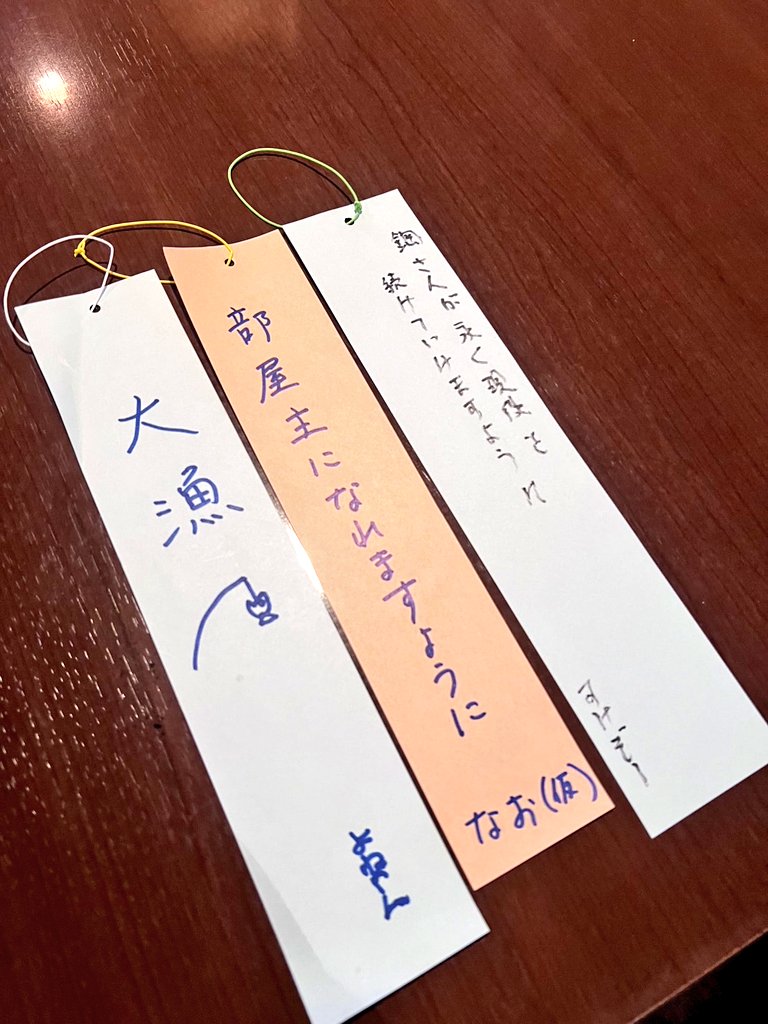 鋼さんが永く現役を
続けていけますように
すけぞー
部屋主になれますように
なお(仮)
大漁